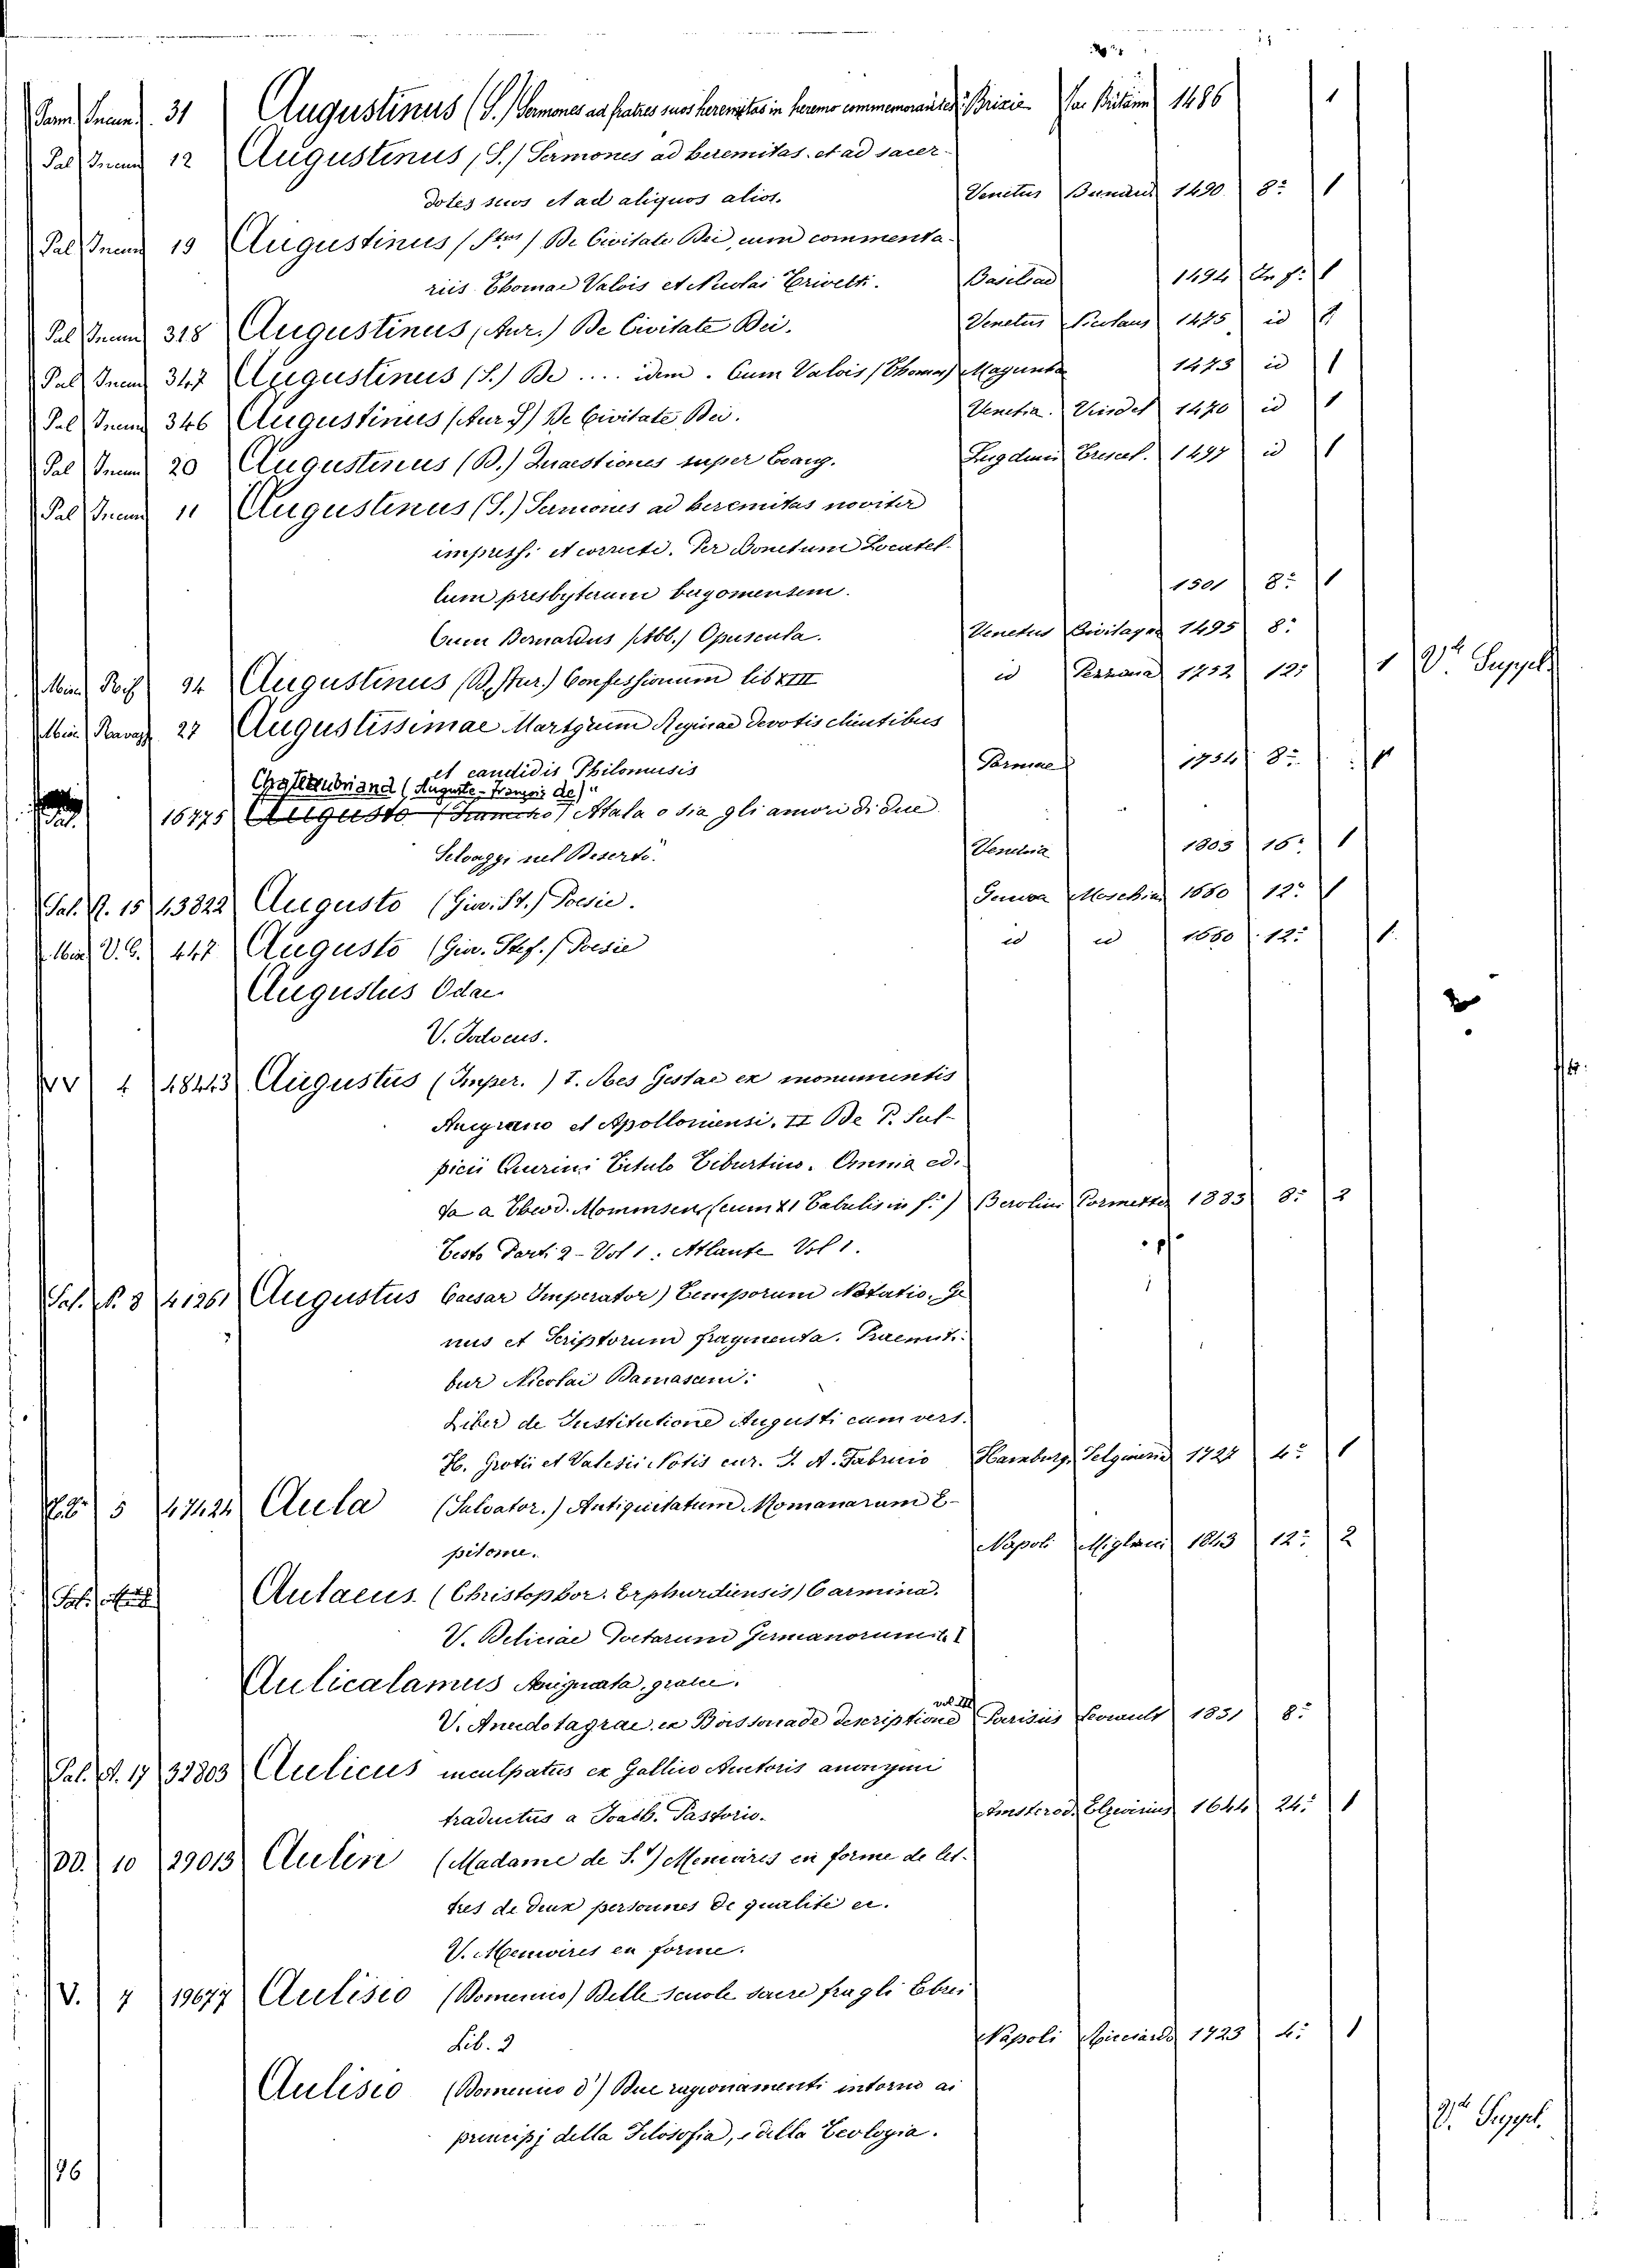 31 Augustinus (S.) Sermones ad fratres suos heremitas in heremo commemorantes Brixie 1486 1
Pal Incun 12 Augustinus (S.) Sermones ad heremitas et ad sacer-
dotes suos et ad aliquos alios. Venetus 1490 8º 1
Pal Incun 19 Augustinus (Stus) De Civitate Dei, cum commenta-
riis Thomae Valois et Nicolai Trivelti. Basileae 1494 In fº 1
Pal Incun 318 Augustinus (Aur.) De Civitate Dei. Venetus Nicolaus 1475 id 1
Pal Incun 347 Augustinus (S.) De .... idem. Cum Valois (Thomas) Magunta 1473 id 1
Pal Incun 346 Augustinus (Aur S) De Civitate Dei. Venetia. Vindel 1470 id 1
Pal Incun 20 Augustinus (B.) Quaestiones super Evang. Lugduni Trescel. 1497 id 1
Pal Incun 11 Augustinus (S.) Sermones ad heremitas noviter
impress. et correcti. Per Bonetum Locatel-
lum presbyterum 1501 8º 1
Cum Bernardus (Abb.) Opuscula. Venetus 1495 8º
94 Augustinus (B. Aur.) Confessionum lib XIII id Pezzana 1752 12º 1 Vª Suppel.
27 Augustissimae Martyrum Reginae devotis clientibus
et candidis Philomusis Parmae 1754 8º 1
Chateaubriand (Auguste-François de)"
16775 Augusto (Francesco) Atala o sia gli amori di due
Selvaggi nel Deserto. Venezia 1803 16º 1
Sal. R. 15 43822 Augusto (Giov. St.) Poesie. Genova 1680 12º 1
V. C. 447 Augusto (Giov. Stef.) Poesie id id 1680 12º 1
Augustus Odae
V. Jodocus.
VV 4 48443 Augustus (Imper.) I. Res Gestae ex monumentis
Ancyrano et Apolloniensi. II De P. Sul-
picii Quirini Titulo Tiburtino. Omnia edi-
ta a Theod. Mommsen (cum 11 Tabulis in fº) Berolini 1883 8º 2
Testo Parti 2 - Vol 1. Atlante Vol 1.
Sal. N. 3 41261 Augustus Caesar Imperator) Temporum Notatio, Ge
nus et Scriptorum fragmenta. Praemit-
tur Nicolai Damasceni.
Liber de Institutione Augusti cum vers.
H. Grotii et Valesii Notis cur. J. A. Fabricio Hamburg. 1727 4º 1
5 47424 Aula (Salvator.) Antiquitatum Romanarum E-
pitome. Napoli Miglacci 1843 12º 2
Aulaeus. (Christophor. Erphurdiensis) Carmina.
V. Deliciae Poetarum Germanorum t. I
Aulicalamus Aenigmata, graece.
V. Anecdota graeca ex Boissonade descriptione vol III Parisiis 1831 8º
Pal. A. 17 32803 Aulicus inculpatus ex Gallico Auctoris anonymi
traductus a Joach. Pastorio. Amsterod. Elzevirius 1644 24º 1
DD. 10 29013 Aulin (Madame de S.t) Memoires en forme de let-
tres de deux personnes de qualité ec.
V. Memoires en forme.
V. 7 19677 Aulisio (Domenico) Delle Scuole sacre fra gli Ebrei
Lib. 2 Napoli 1723 4º 1
Aulisio (Domenico d') Due ragionamenti intorno ai
principj della Filosofia, e della Teologia. Vª Suppel.
196